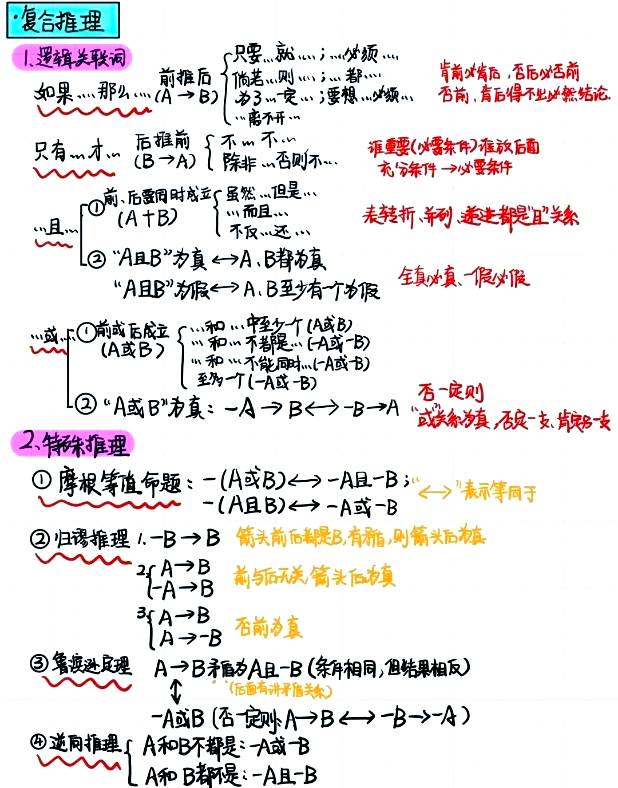 ·复合推理
1.逻辑关联词
如果…那么… 前推后 (A→B)
只要…就…；…必须…
倘若…则…；…都…
为了…一定…；要想…必须…
…离不开…
肯前必肯后，否后必否前
否前、肯后得不出必然结论.
只有…才… 后推前 (B→A)
不…不…
除非…否则不…
谁重要(必要条件)谁放后面
充分条件→必要条件
…且… ①前、后要同时成立 (A+B)
虽然…但是…
…而且…
不仅…还…
表转折、并列、递进都是"且"关系
②"A且B"为真↔A、B都为真
"A且B"为假↔A、B至少有一个为假
全真必真、一假必假
…或… ①前或后成立 (A或B)
…和…中至少一个(A或B)
…和…不都是…(-A或-B)
…和…不能同时…(-A或-B)
至多一个(-A或-B)
②"A或B"为真：-A→B↔-B→A
否一定则
"或"关系为真，否定一支、肯定另一支
2、特殊推理
①摩根等值命题：-(A或B)↔-A且-B；
-(A且B)↔-A或-B
"↔"表示等同于
②归谬推理 1.-B→B 箭头前后都是B,有矛盾,则箭头后为真
2.{A→B
-A→B 前与后无关,箭头后为真
3.{A→B
A→-B 否前为真
③鲁滨逊定理 A→B矛盾为A且-B(条件相同，但结果相反)
(后面有讲矛盾关系)
↕
-A或B(否一定则:A→B↔-B→-A)
④逆向推理{A和B不都是：-A或-B
A和B都不是：-A且-B